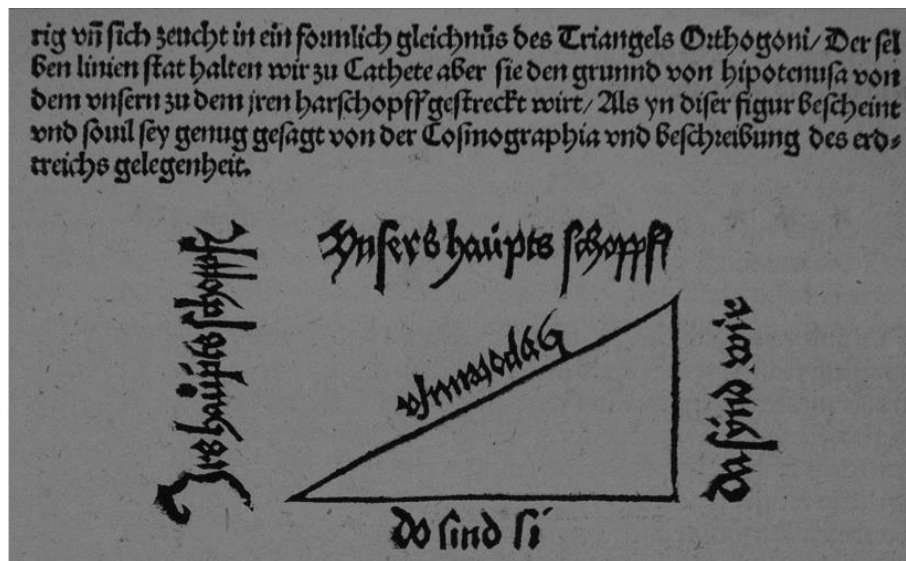 rig vñ sich zeucht in ein formlich gleichnüs des Triangels Orthogoni/ Der sel
ben linien stat halten wir zu Cathete aber sie den grunnd von hipotenusa von
dem vnsern zu dem jren harschopff gestreckt wirt/ Als yn diser figur bescheint
vnd souil sey genug gesagt von der Cosmographia vnd beschreibung des erd⸗
treichs gelegenheit.
Vnsers haúpts schopffs
Irs haúpts schopff
Hypotenusa
Da sind wir
do sind si